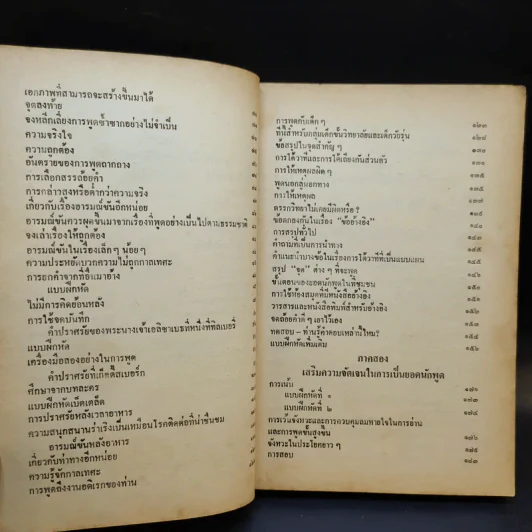 เอกภาพที่สามารถจะสร้างขึ้นมาได้
จุดลงท้าย
จงหลีกเลี่ยงการพูดซ้ำซากอย่างไม่จำเป็น
ความจริงใจ
ความถูกต้อง
อันตรายของการพูดถากถาง
การเลือกสรรถ้อยคำ
การกล่าวสูงหรือต่ำกว่าความจริง
เกี่ยวกับเรื่องของอารมณ์ขันอีกหน่อย
อารมณ์ขันควรผุดขึ้นมาจากเรื่องที่พูดอย่างเป็นไปตามธรรมชาติ
จงเล่าเรื่องให้ถูกต้อง
อารมณ์ขันในเรื่องเล็กๆ น้อยๆ
ความประหยัดบวกความไม่ถูกกาลเทศะ
การยกคำจากที่อื่นมาอ้าง
แบบฝึกหัด
ไม่มีการคิดย้อนหลัง
การใช้จดบันทึก
คำปราศรัยของพระนางเจ้าเอลิซาเบธที่หนึ่งที่ทิลเบอรี่
แบบฝึกหัด
เครื่องมือสองอย่างในการพูด
คำปราศรัยที่เก็ตตีสเบอร์ก
ศึกษาจากบทละคร
แบบฝึกหัดเบ็ดเตล็ด
การปราศรัยหลังเวลาอาหาร
ความสนุกสนานร่าเริงเป็นเหมือนโรคติดต่อที่น่าชื่นชม
อารมณ์ขันหลังอาหาร
เกี่ยวกับท่าทางอีกหน่อย
ความรู้จักกาลเทศะ
การพูดถึงงานอดิเรกของท่าน
การพูดกับเด็กๆ ๑๒๓
ทีนี้สำหรับกลุ่มเด็กชั้นวิทยาลัยและเด็กวัยรุ่น ๑๒๔
ข้อสรุปในจุดสำคัญๆ ๑๓๐
การโต้วาทีและการโต้เถียงกันส่วนตัว ๑๓๑
การให้เหตุผลผิดๆ ๑๓๕
พูดนอกลู่นอกทาง ๑๓๕
การให้เหตุผล
ตรรกวิทยาไม่เคยมีผิดหรือ?
ข้อตกลงกันในเรื่อง "ข้ออ้างอิง"
การสรุปทั่วไป ๑๔๓
คำถามที่เป็นการนำทาง
คำแนะนำบางข้อในเรื่องการโต้วาทีที่เป็นแบบแผน
สรุป "จุด" ต่างๆ ที่จะพูด ๑๔๖
ขั้นตอนของยอดนักพูดในที่ชุมชน
การใช้ห้องสมุดที่มีหนังสืออ้างอิง ๑๕๑
วารสารและหนังสือพิมพ์สำหรับอ้างอิง
จดถ้อยคำดีๆ เอาไว้เอง
ทดสอบ - ท่านรู้คำตอบเหล่านี้ไหม?
แบบฝึกหัดเพิ่มเติม
ภาคสอง
เสริมความชัดเจนในการเป็นยอดนักพูด
การเน้น ๑๗๑
แบบฝึกหัดที่ ๑ ๑๗๓
แบบฝึกหัดที่ ๒ ๑๗๔
การเว้นจังหวะและการควบคุมลมหายใจในการอ่าน
และการพูดขั้นสูงขึ้น ๑๗๖
จังหวะในประโยคยาวๆ ๑๗๕
การสอบ ๑๘๓